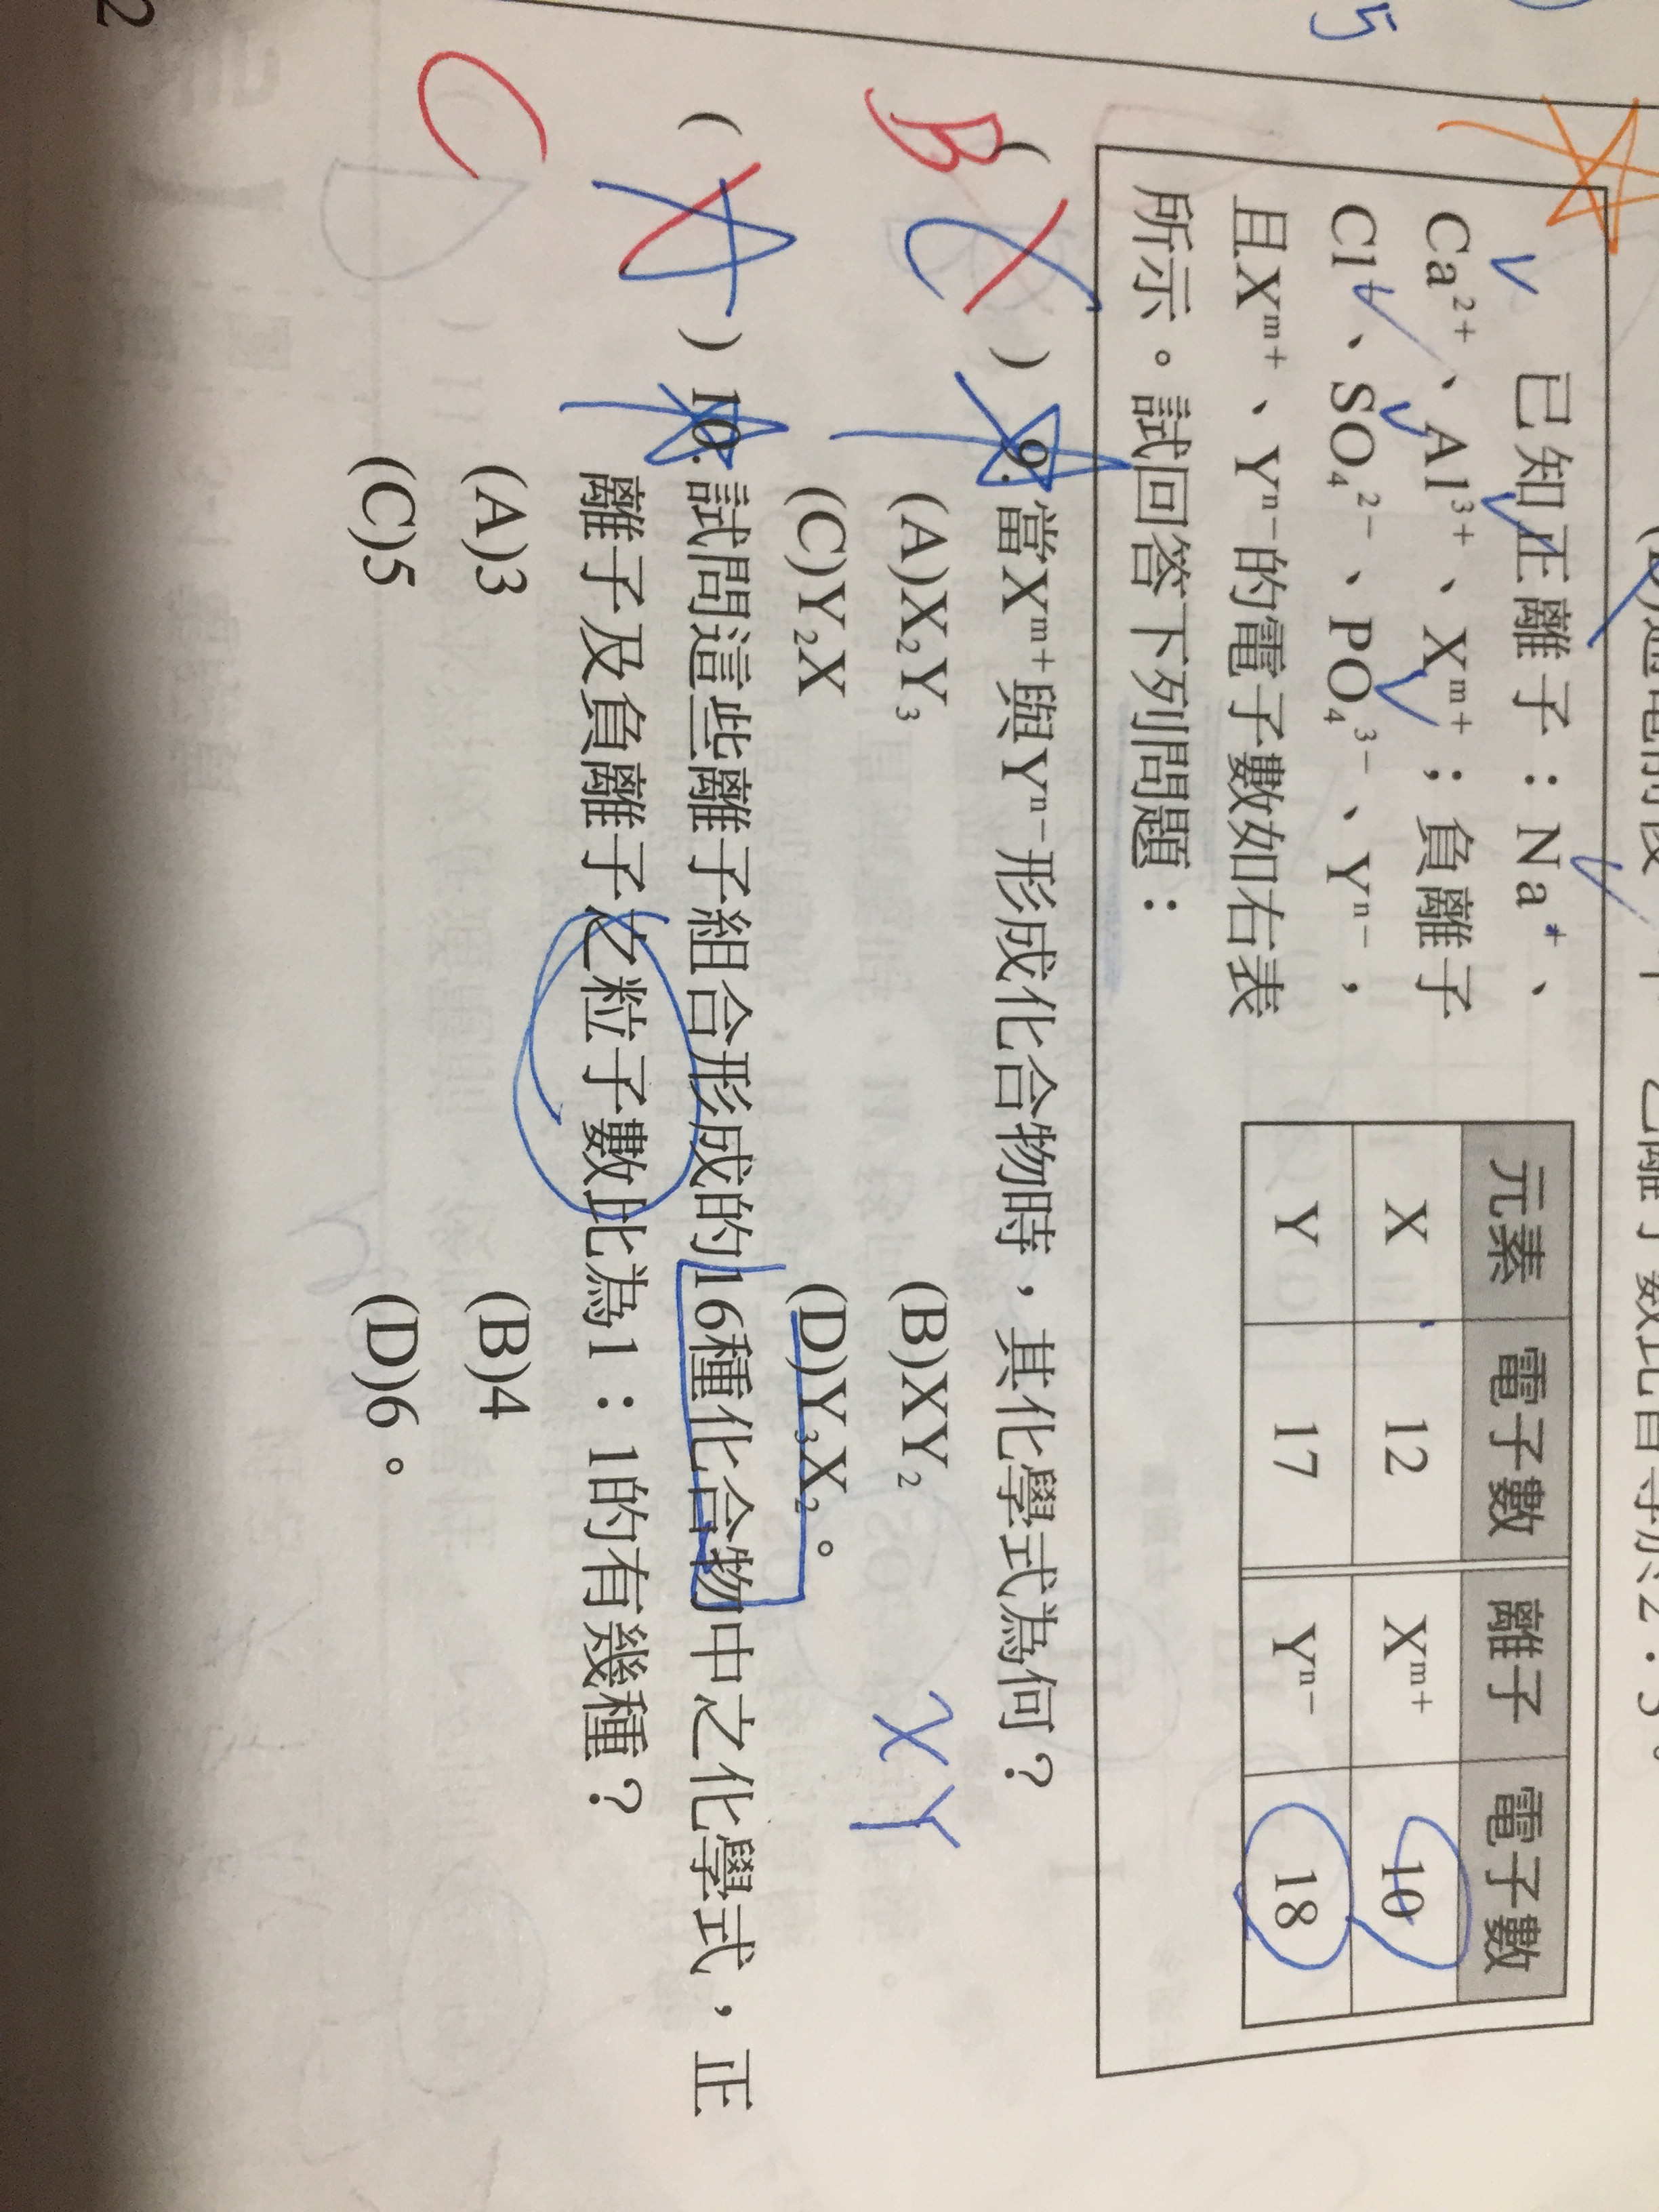 已知正離子：Na⁺、
Ca²⁺、Al³⁺、Xᵐ⁺；負離子
Cl⁻、SO₄²⁻、PO₄³⁻、Yⁿ⁻，
且Xᵐ⁺、Yⁿ⁻的電子數如右表
所示。試回答下列問題：
元素 電子數 離子 電子數
X 12 Xᵐ⁺ 10
Y 17 Yⁿ⁻ 18
B
( C ) 9.當Xᵐ⁺與Yⁿ⁻形成化合物時，其化學式為何？
(A)X₂Y₃ (B)XY₂
(C)Y₂X (D)Y₃X₂。
X Y
( A ) 10.試問這些離子組合形成的16種化合物中之化學式，正
離子及負離子之粒子數比為1：1的有幾種？
C
(A)3 (B)4
(C)5 (D)6。
5
2